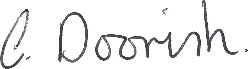 C. Doorish.